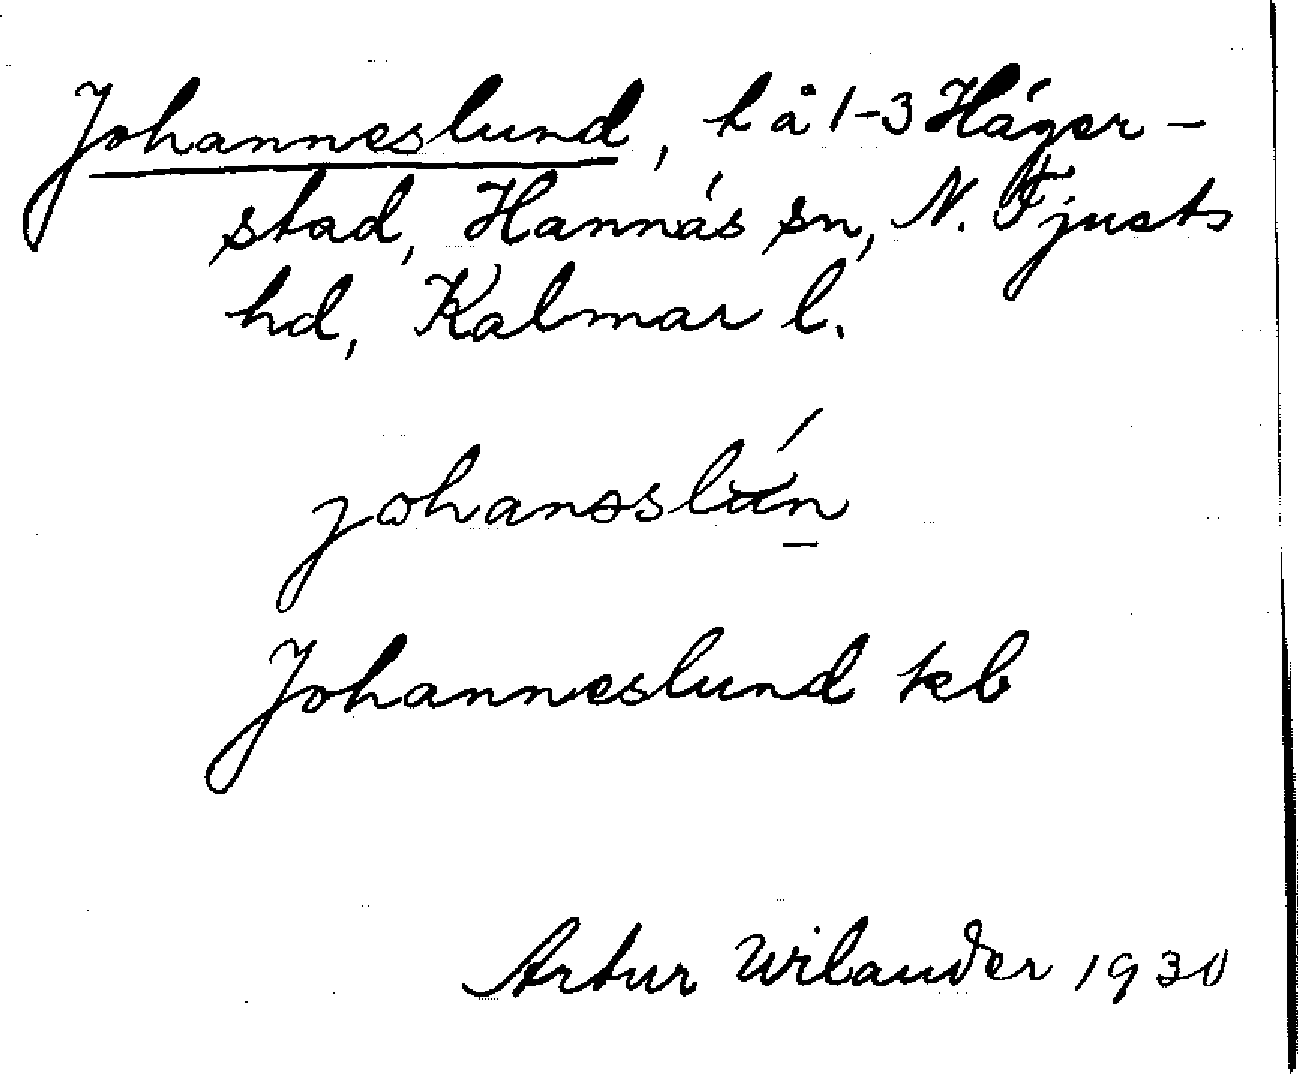 Johanneslund, l å 1-3 Häger-
stad, Hannäs sn, N. Tjusts
hd, Kalmar l.
johansslún
Johanneslund kb
Artur Wilander 1930